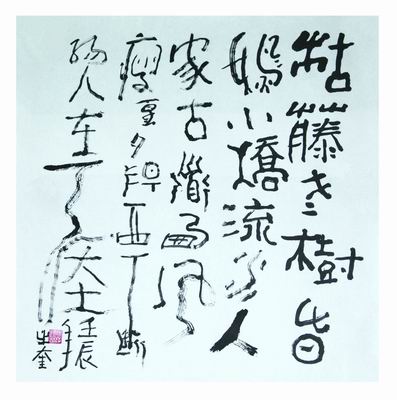 枯藤老樹昏
鴉小橋流水人
家古道西風
瘦馬夕陽西下斷
腸人在天涯
壬辰年